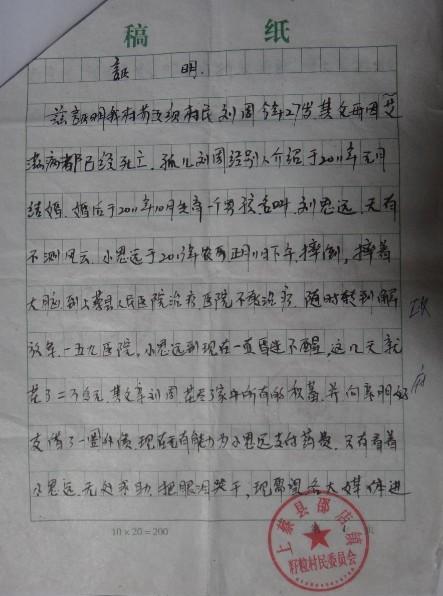 稿 纸
証 明.
兹証明我村苏文须村民刘周今年27岁,其父母因艾
滋病都已经死亡.孤儿刘周经别人介绍于2011年元月
结婚.婚后于2011年10月生育一个男孩名叫刘思远,天有
不测风云.小思远于2013年农历正月11日下午,摔倒,摔着
大脑,到上蔡县人民医院治疗,医院不接治疗.随时转到解
放军一五九医院,小思远到现在一直昏迷不醒.这几天就
花了二万多元,其父亲刘周花尽了家中所有的积蓄.并向亲朋好
友借了一圈外债,现在无有能力为小思远支付药费.只有看着
小思远无处求助.把眼泪哭干,现需望各大媒体进
10×20=200
上蔡县邵店镇
村民委员会